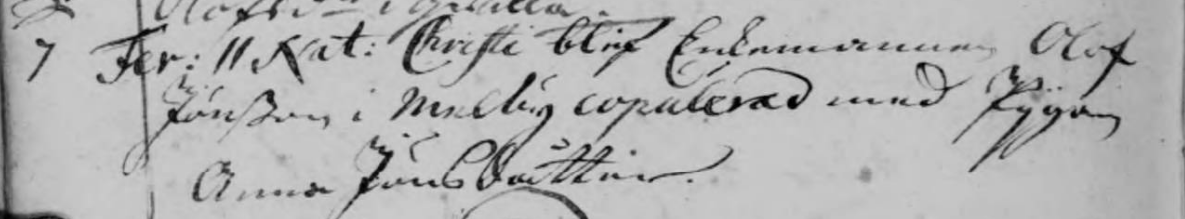 Olofs i
7 Fer: II Nat: Christi blef Enkemannen Olof
Jönßon i Melby copulerad med Pygan
Anna Jönsdotter.